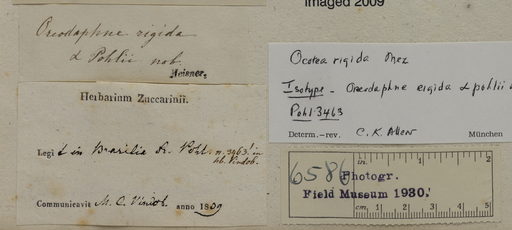 Imaged 2009
Oreodaphne rigida
α Pohlii nob.
Meisner.
Herbarium Zuccarinii.
Legit in Brasilia Dr. Pohl. n. 3463! in
hb. Vindob.
Communicavit M. C. Vindob. anno 1839
Ocotea rigida Mez
Isotype - Oreodaphne rigida α pohlii
Pohl 3463
Determ.-rev. C. K. Allen München
6586
Photogr.
Field Museum 1930.
in. 1 2
cm. 1 2 3 4 5